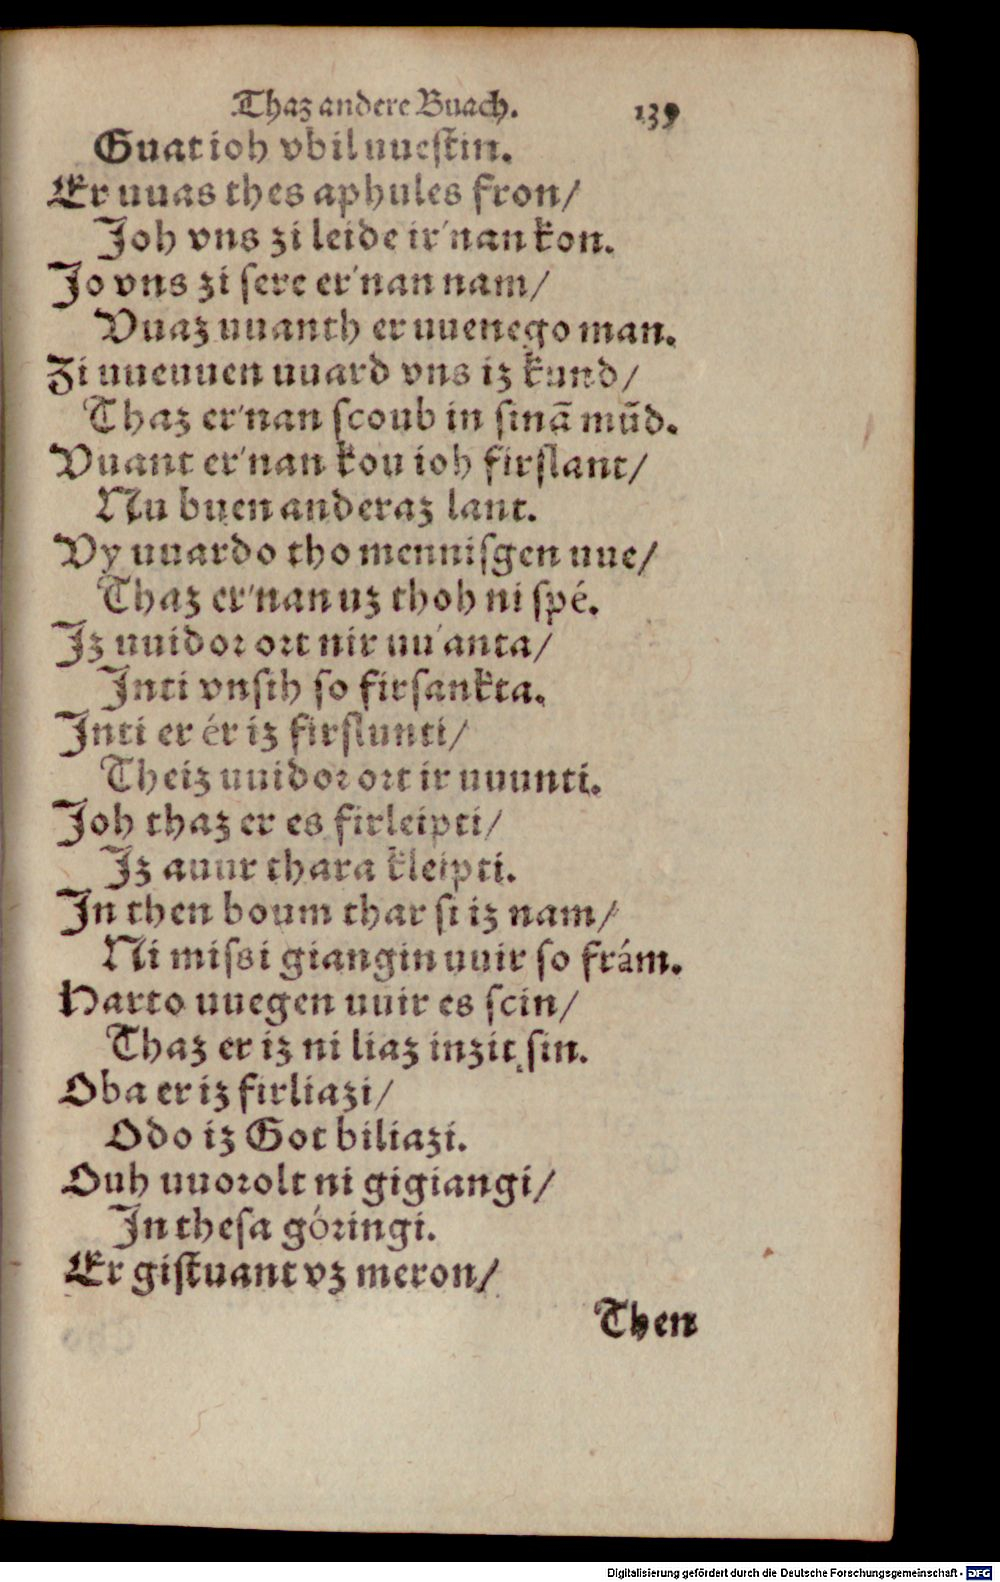 Thaz andere Buach. 139
Guat ioh vbil uuestin.
Er uuas thes aphules fron/
Joh vns zi leide ir'nan kon.
Jo vns zi sere er'nan nam/
Vuaz uuanth er uuenego man.
Zi uueuuen uuard vns iz kund/
Thaz er'nan scoub in sinã mũd.
Vuant er'nan kou ioh firslant/
Nu buen anderaz lant.
Vy uuardo tho mennisgen uue/
Thaz er'nan uz thoh ni spé.
Jz uuidor ort nir uu'anta/
Inti vnsih so firsankta.
Inti er ér iz firslunti/
Theiz uuidor ort ir uuunti.
Joh thaz er es firleipti/
Jz auur thara kleipti.
In then boum thar si iz nam/
Ni missi giangin uuir so frám.
Harto uuegen uuir es scin/
Thaz er iz ni liaz inzit sin.
Oba er iz firliazi/
Odo iz Got biliazi.
Ouh uuorolt ni gigiangi/
In thesa góringi.
Er gistuant vz meron/
Then
Digitalisierung gefördert durch die Deutsche Forschungsgemeinschaft - DFG